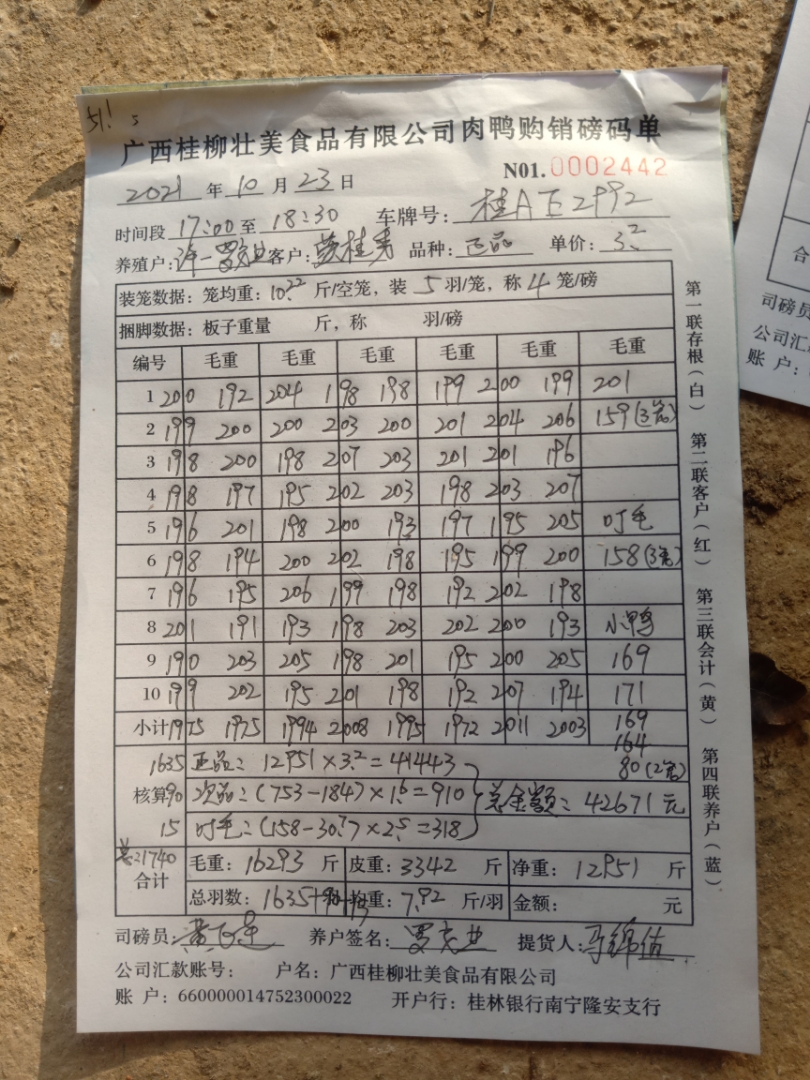 51! 5
广西桂柳壮美食品有限公司肉鸭购销磅码单
N01.0002442
2021 年 10 月 23 日
时间段 17:00 至 18:30 车牌号: 桂A E2992
养殖户: 客户: 黄桂秀 品种: 正品 单价: 3.2
装笼数据: 笼均重: 10.22 斤/空笼, 装 5 羽/笼, 称 4 笼/磅
捆脚数据: 板子重量 斤, 称 羽/磅
编号 毛重 毛重 毛重 毛重 毛重 毛重
1 200 192 204 198 198 199 200 199 201
2 199 200 200 203 200 201 204 206 159(3笼)
3 198 200 198 207 203 201 201 196
4 198 197 195 202 203 198 203 207
5 196 201 198 200 193 197 195 205 吋毛
6 198 194 200 202 198 195 199 200 158(3笼)
7 196 195 206 199 198 192 202 198
8 201 191 193 198 203 202 200 193 小鸭
9 190 203 205 198 201 195 200 205 169
10 199 202 195 201 198 192 207 194 171
小计 1975 1975 1994 2008 1995 1972 2011 2003 169
164
80(2笼)
核算
1635 正品: 12951×3.2=41443
90 次品: (753-184)×1.6=910 总金额: 42671元
15 吋毛: (158-30.7)×2.5=318
总:1740
合计
毛重: 16293 斤 皮重: 3342 斤 净重: 12951 斤
总羽数: 1635+90+15 均重: 7.92 斤/羽 金额: 元
司磅员: 养户签名: 罗克业 提货人: 马锦佑
公司汇款账号: 户名: 广西桂柳壮美食品有限公司
账 户: 660000014752300022 开户行: 桂林银行南宁隆安支行
第一联存根(白) 第二联客户(红) 第三联会计(黄) 第四联养户(蓝)
合
司磅员
公司汇
账 户: